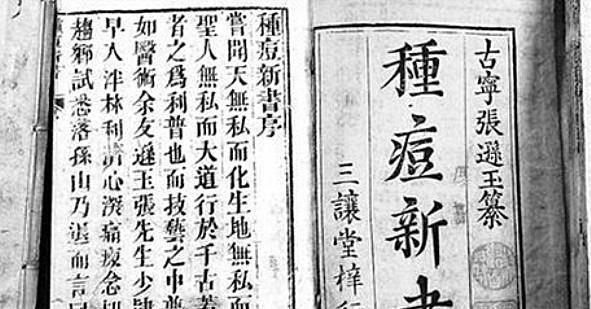 古寧張遜玉纂
種痘新書
三讓堂梓行
種痘新書序
嘗聞天無私而化生地無私而
聖人無私而大道行於千古若
者之爲利普也而技藝之中
如醫術余友遜玉張先生少
早入泮林利濟心深痛瘝念切
趨鄉試悉落孫山乃退而言曰